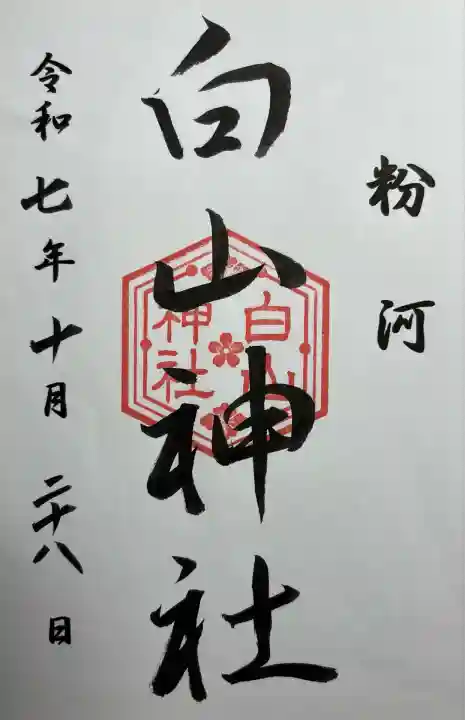 粉河
白山神社
白山神社
令和七年十月二十八日